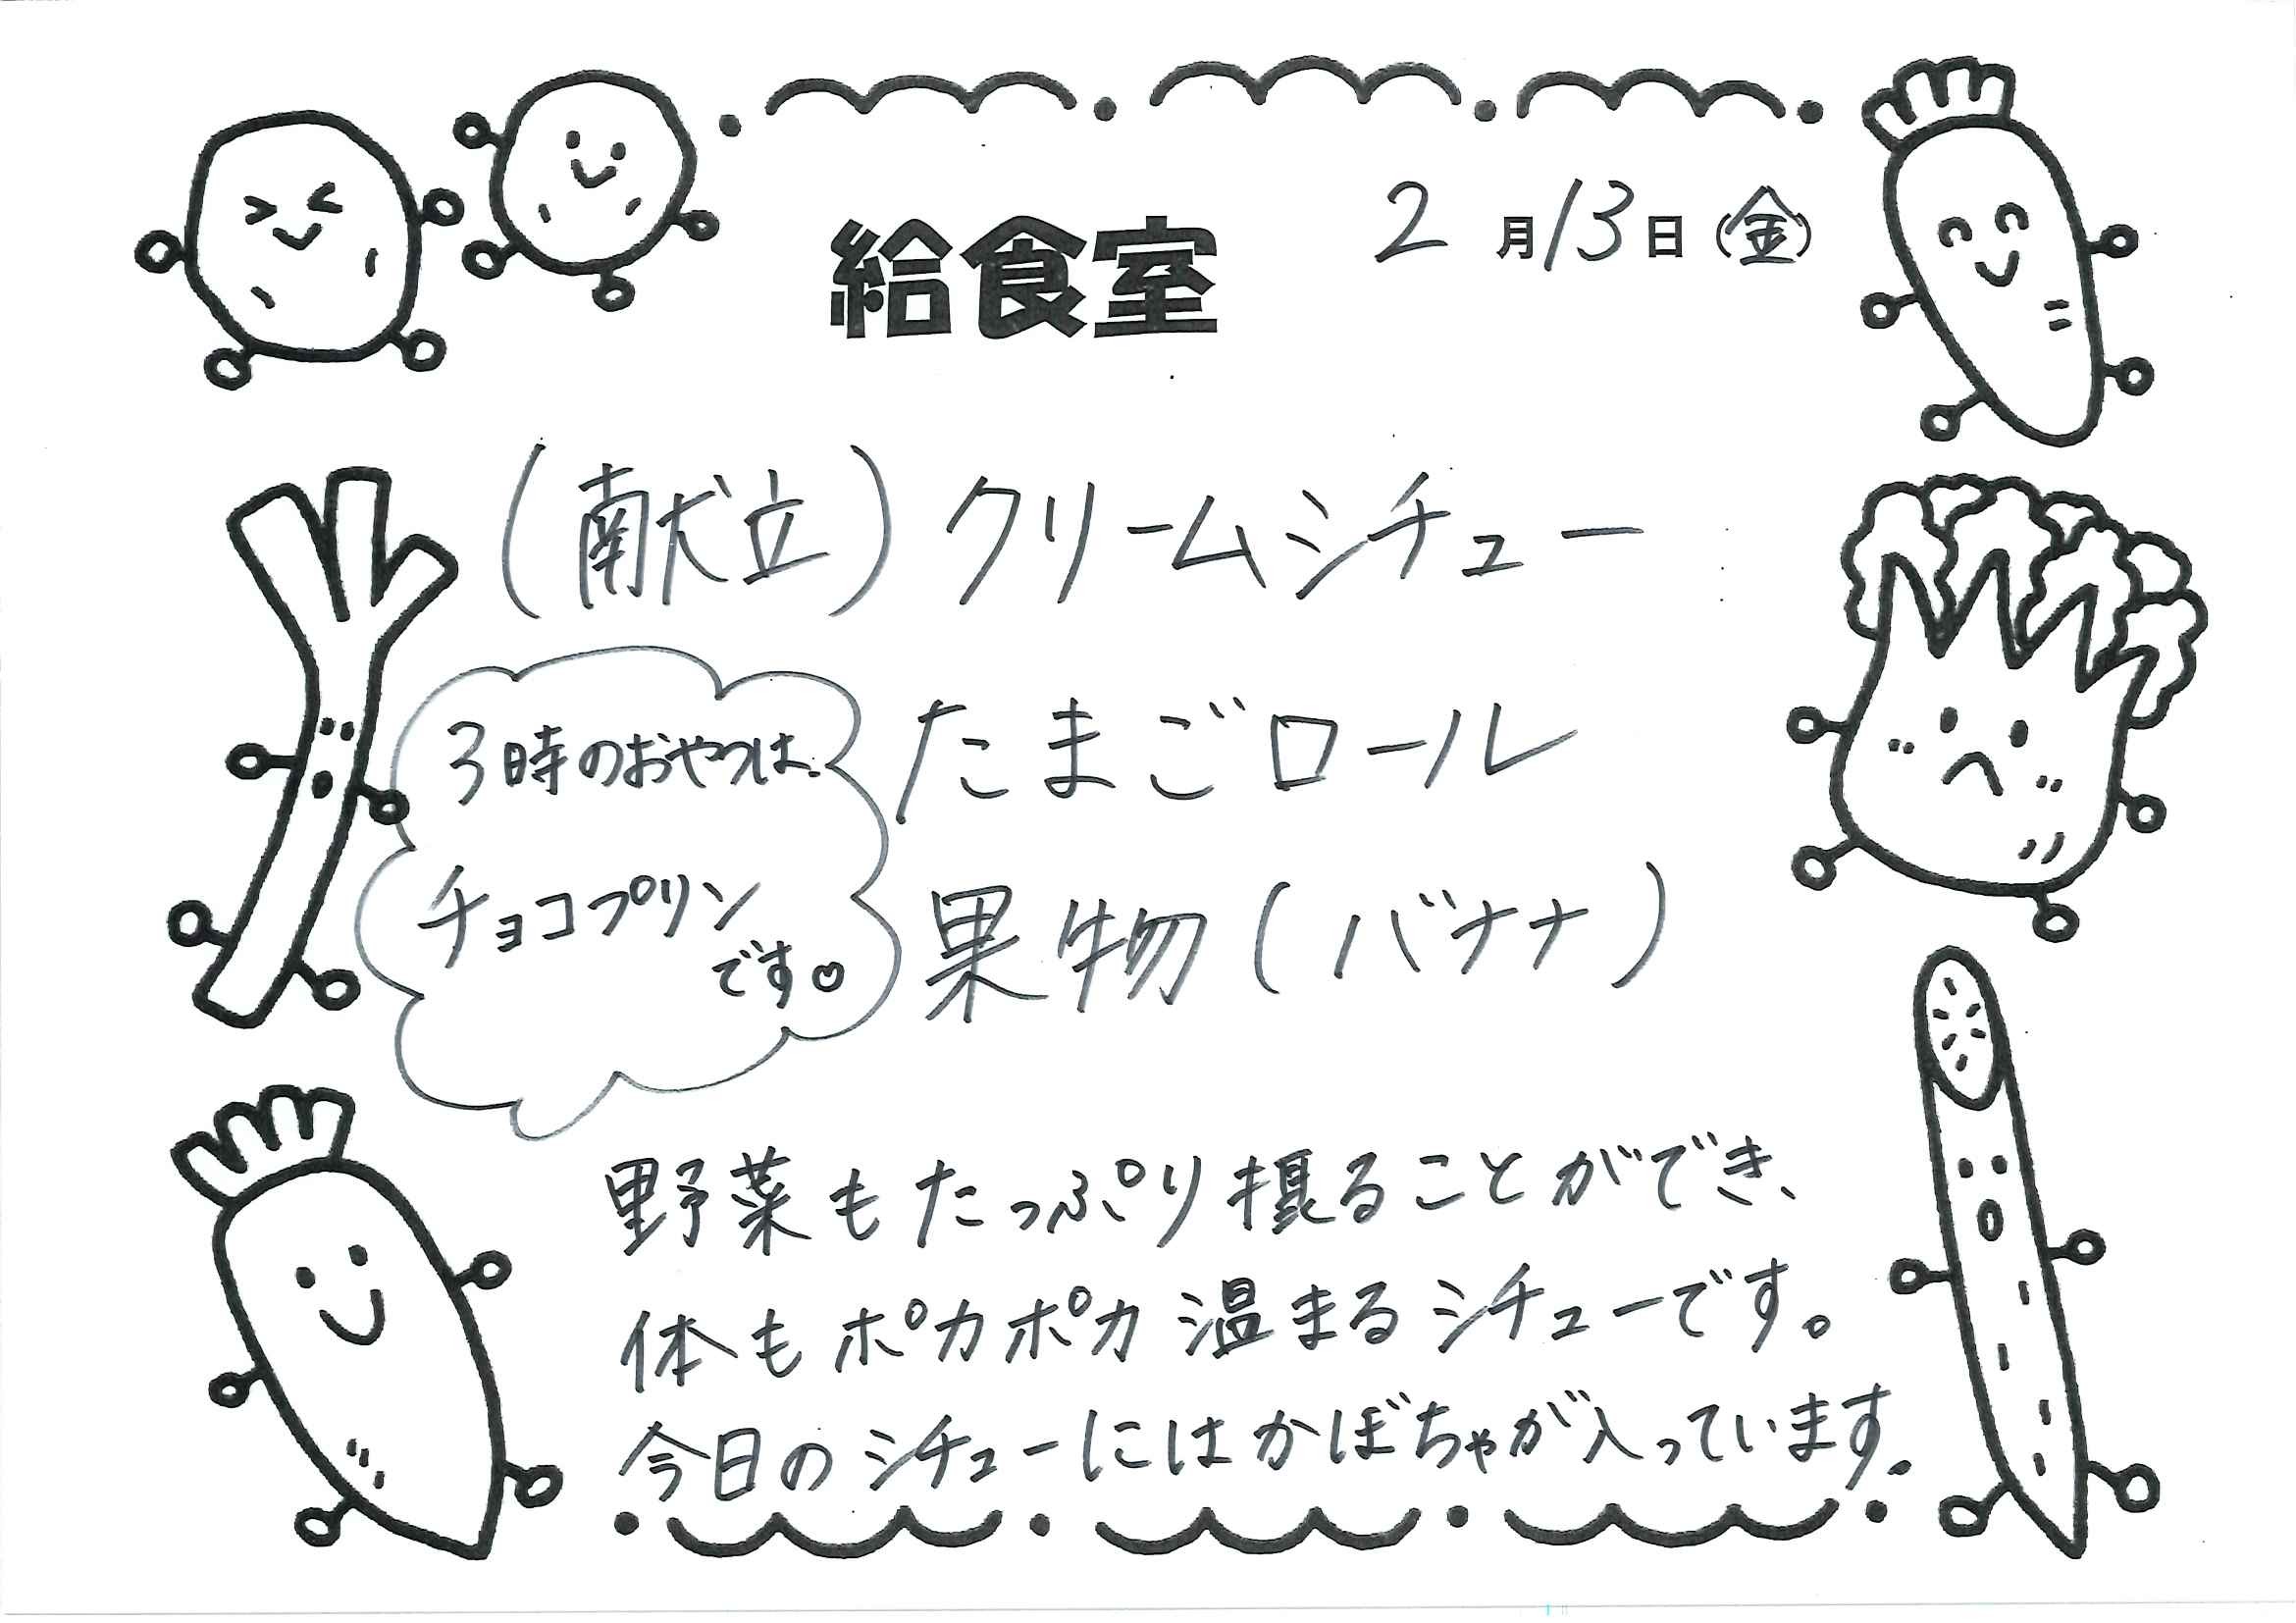 給食室
2月13日(金)
(献立)クリームシチュー
たまごロール
果物(バナナ)
3時のおやつは、
チョコプリン
です。
野菜もたっぷり摂ることができ、
体もポカポカ温まるシチューです。
今日のシチューにはかぼちゃが入っています。